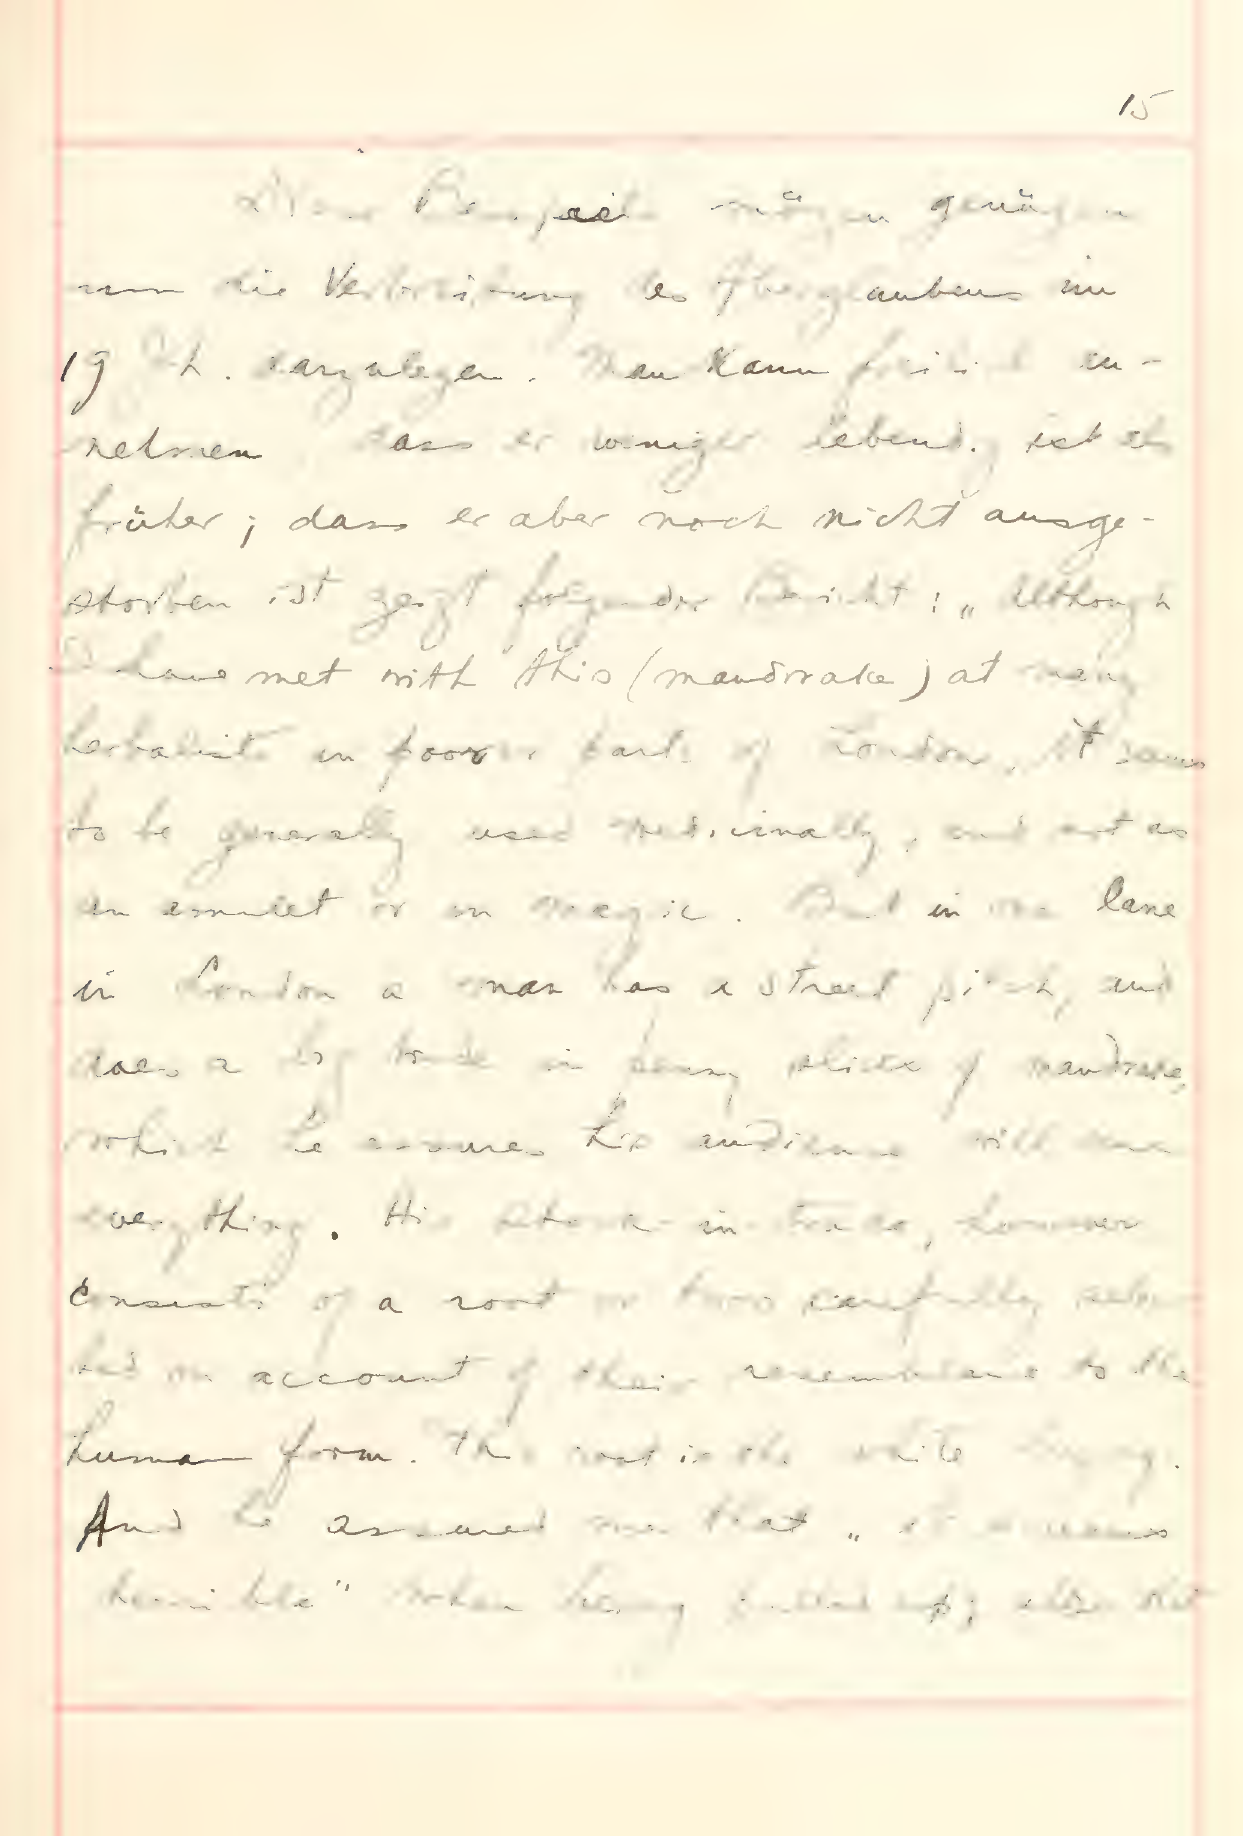 15
Diese Beispiele mögen genügen
um die Verbreitung des Aberglaubens im
19 Jh. darzulegen. Man kann freilich an-
nehmen dass er weniger lebendig ist als
früher; dass er aber noch nicht ausge-
storben ist zeigt folgender Bericht: „Although
I have met with this (mandrake) at many
herbalists in poorer parts of London, it seems
to be generally used medicinally, and not as
an amulet or in magic. But in one lane
in London a man has a street pitch, and
does a big trade in penny slices of mandrake,
which he assures his audience will cure
everything. His stock-in-trade, however
consists of a root or two carefully selec-
ted on account of their resemblance to the
human form. The root is the white bryony.
And he assured me that „it screams
horrible" when being pulled up; also that